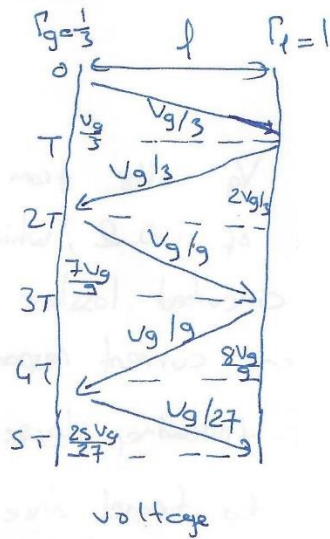 Γg=1/3 l Γl=1
0
Vg/3
T Vg/3
Vg/3
2Vg/3
2T
Vg/9
7Vg/9
3T
Vg/9
8Vg/9
4T
Vg/27
5T 25Vg/27
voltage